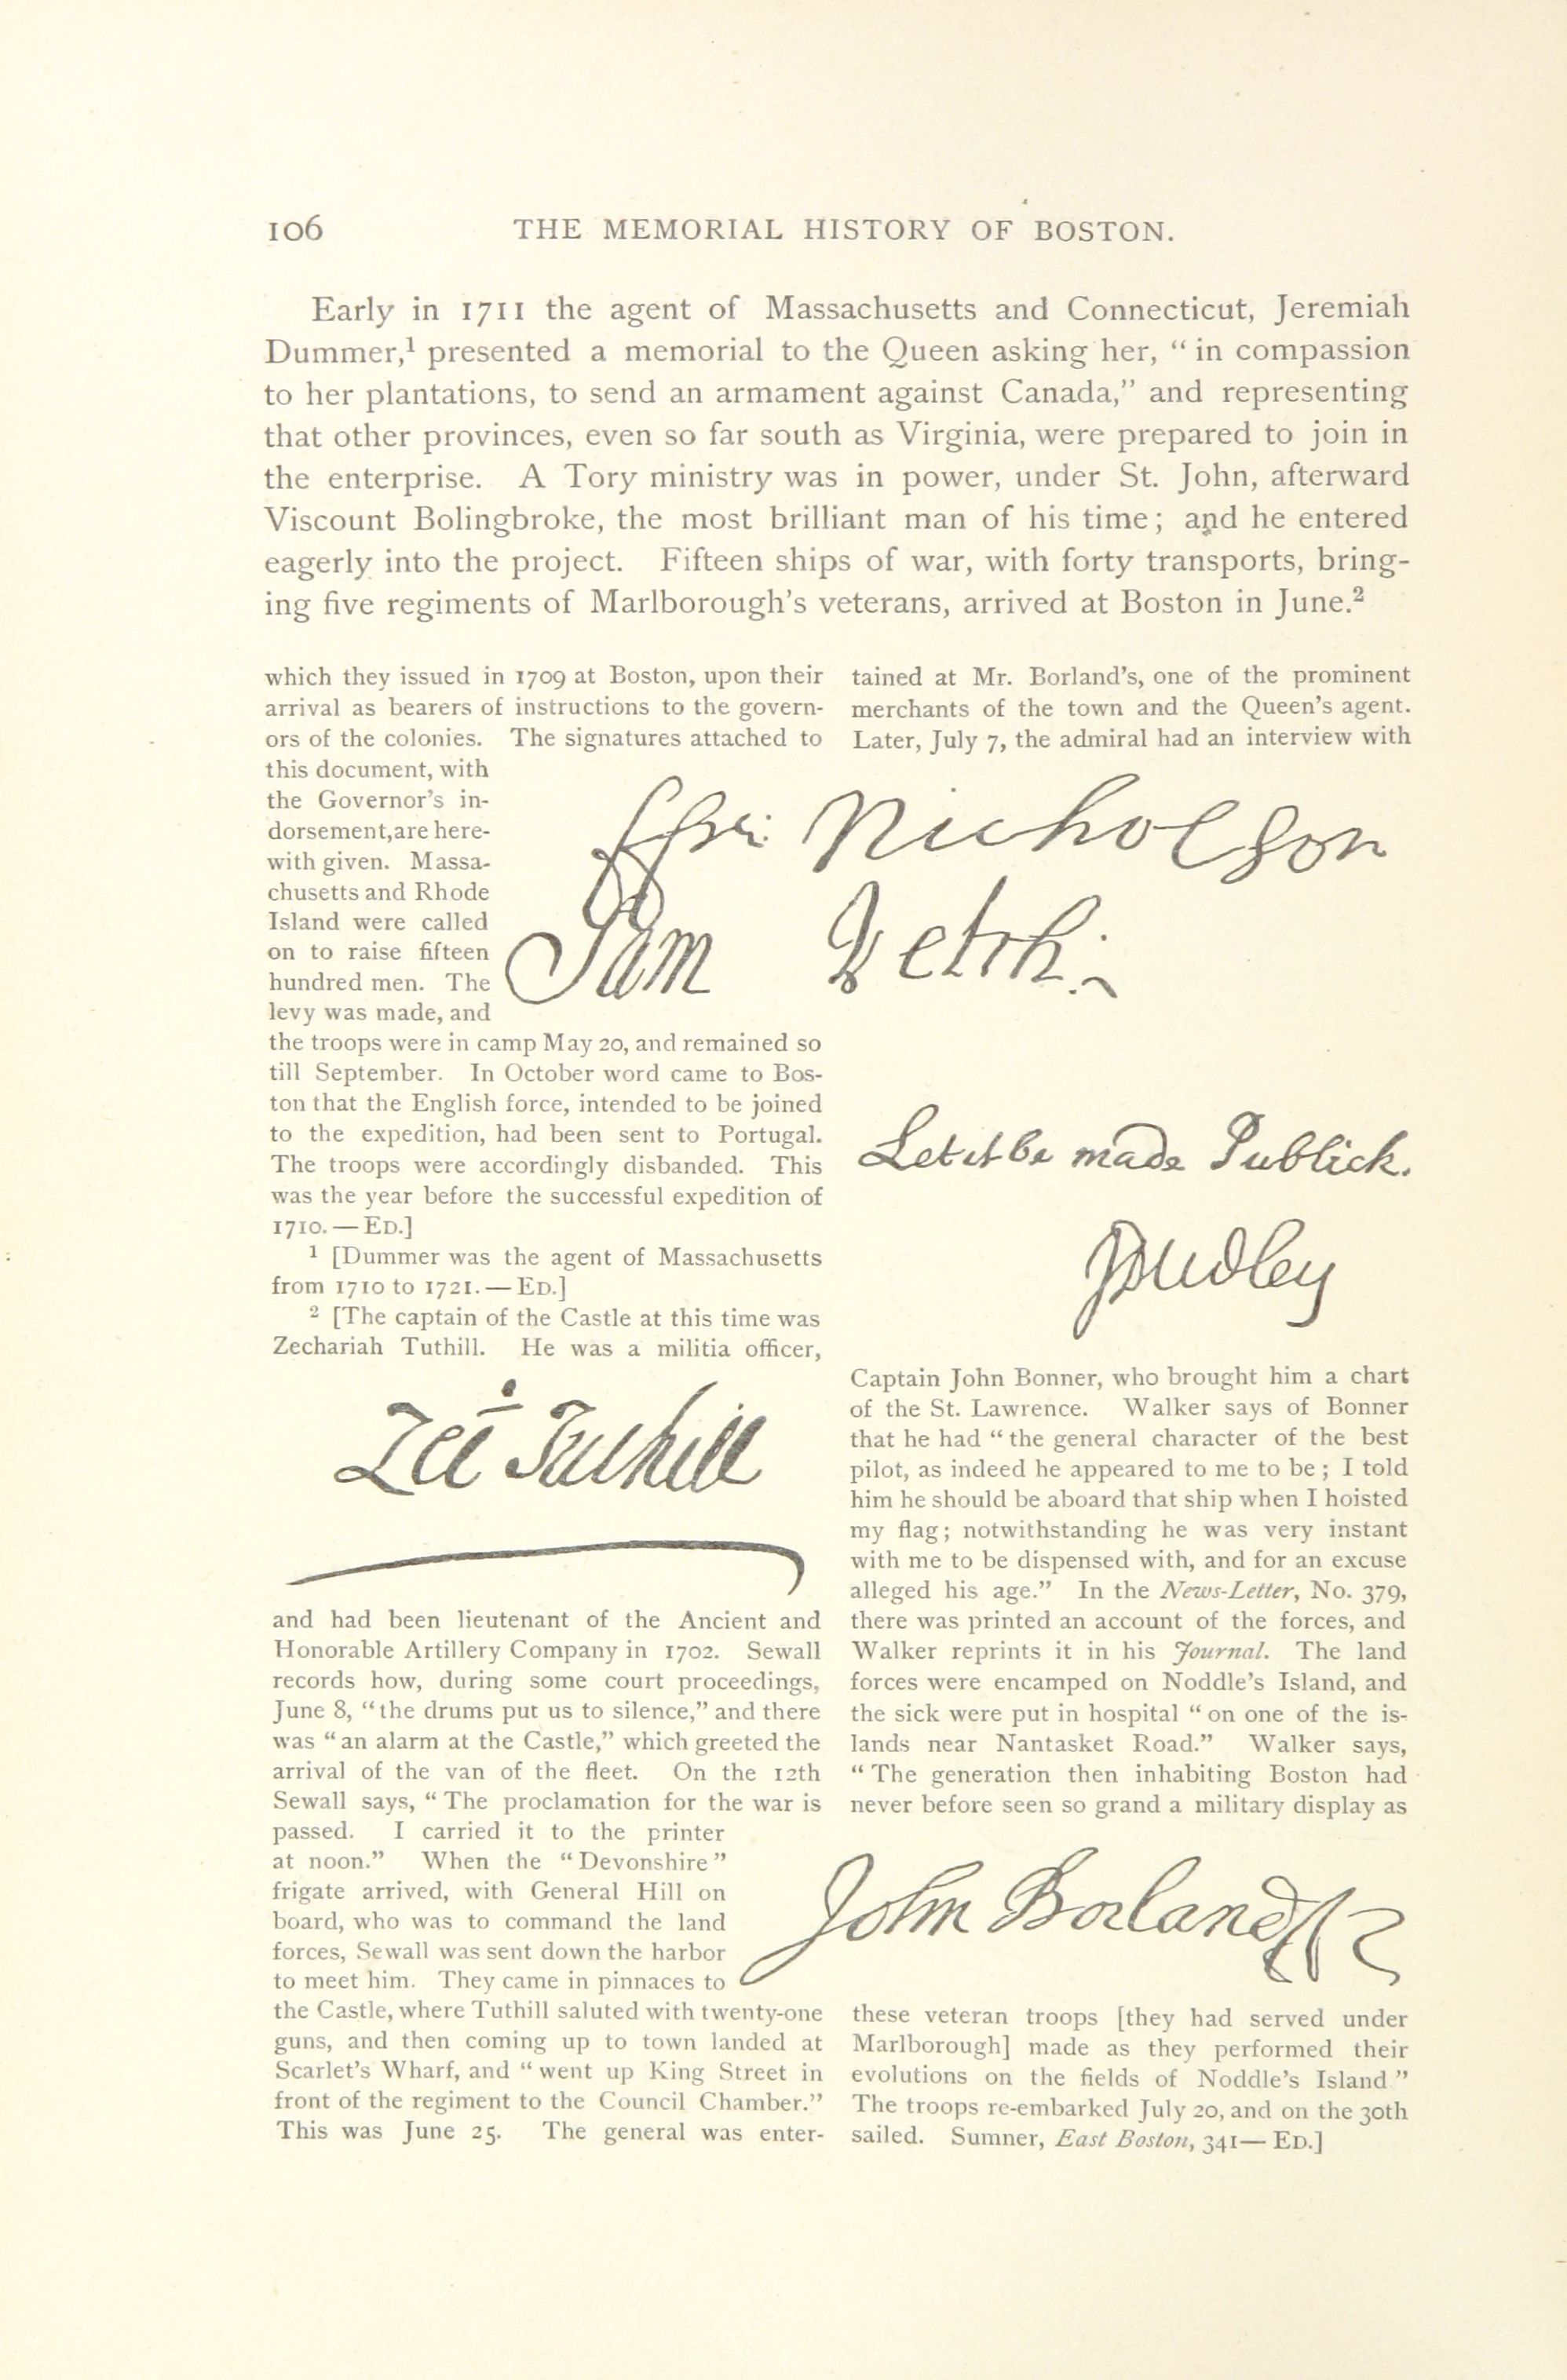 106
THE MEMORIAL HISTORY OF BOSTON.
Early in 1711 the agent of Massachusetts and Connecticut, Jeremiah
Dummer,¹ presented a memorial to the Queen asking her, “in compassion
to her plantations, to send an armament against Canada,” and representing
that other provinces, even so far south as Virginia, were prepared to join in
the enterprise. A Tory ministry was in power, under St. John, afterward
Viscount Bolingbroke, the most brilliant man of his time; and he entered
eagerly into the project. Fifteen ships of war, with forty transports, bring-
ing five regiments of Marlborough's veterans, arrived at Boston in June.²
which they issued in 1709 at Boston, upon their
arrival as bearers of instructions to the govern-
ors of the colonies. The signatures attached to
this document, with
the Governor's in-
dorsement, are here-
with given. Massa-
chusetts and Rhode
Island were called
on to raise fifteen
hundred men. The
levy was made, and
the troops were in camp May 20, and remained so
till September. In October word came to Bos-
ton that the English force, intended to be joined
to the expedition, had been sent to Portugal.
The troops were accordingly disbanded. This
was the year before the successful expedition of
1710. — ED.]
¹ [Dummer was the agent of Massachusetts
from 1710 to 1721. — ED.]
² [The captain of the Castle at this time was
Zechariah Tuthill. He was a militia officer,
Zec Tuthill
and had been lieutenant of the Ancient and
Honorable Artillery Company in 1702. Sewall
records how, during some court proceedings,
June 8, “the drums put us to silence,” and there
was “an alarm at the Castle,” which greeted the
arrival of the van of the fleet. On the 12th
Sewall says, “The proclamation for the war is
passed. I carried it to the printer
at noon.” When the “Devonshire”
frigate arrived, with General Hill on
board, who was to command the land
forces, Sewall was sent down the harbor
to meet him. They came in pinnaces to
the Castle, where Tuthill saluted with twenty-one
guns, and then coming up to town landed at
Scarlet's Wharf, and “went up King Street in
front of the regiment to the Council Chamber.”
This was June 25. The general was enter-
tained at Mr. Borland's, one of the prominent
merchants of the town and the Queen's agent.
Later, July 7, the admiral had an interview with
ffra: Nicholson
Sam Vetch
Let it be made Publick.
J Dudley
Captain John Bonner, who brought him a chart
of the St. Lawrence. Walker says of Bonner
that he had “the general character of the best
pilot, as indeed he appeared to me to be; I told
him he should be aboard that ship when I hoisted
my flag; notwithstanding he was very instant
with me to be dispensed with, and for an excuse
alleged his age.” In the News-Letter, No. 379,
there was printed an account of the forces, and
Walker reprints it in his Journal. The land
forces were encamped on Noddle's Island, and
the sick were put in hospital “on one of the is-
lands near Nantasket Road.” Walker says,
“The generation then inhabiting Boston had
never before seen so grand a military display as
John Borland
these veteran troops [they had served under
Marlborough] made as they performed their
evolutions on the fields of Noddle's Island”
The troops re-embarked July 20, and on the 30th
sailed. Sumner, East Boston, 341— ED.]